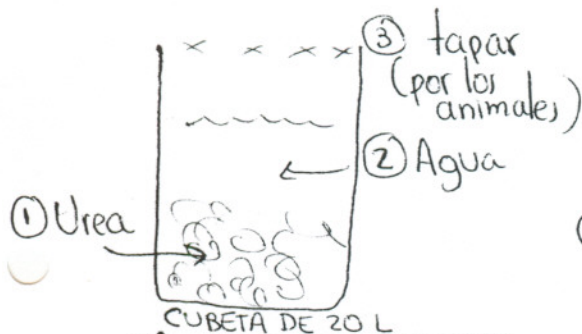 ③ tapar
(por los
animales)
② Agua
① Urea
CUBETA DE 20 L